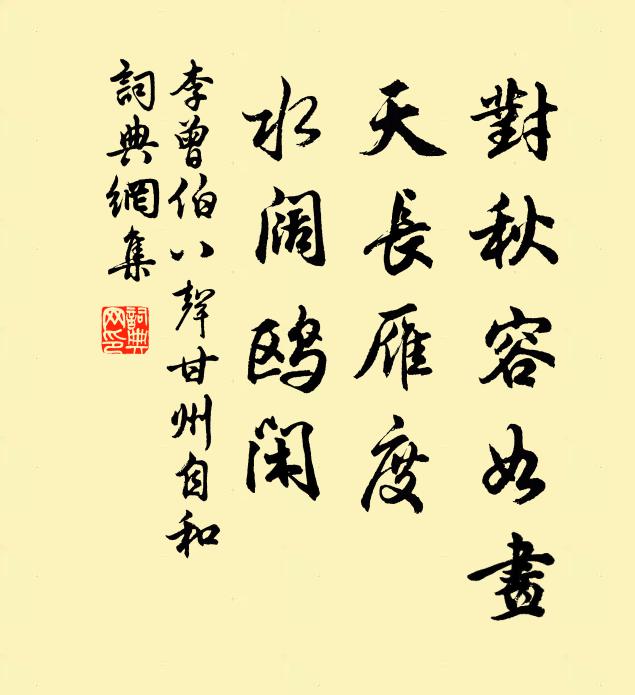 對秋容如畫
天長雁度
水阔鸥闲
李曾伯八聲甘州自和
詞典網集
詞典网印